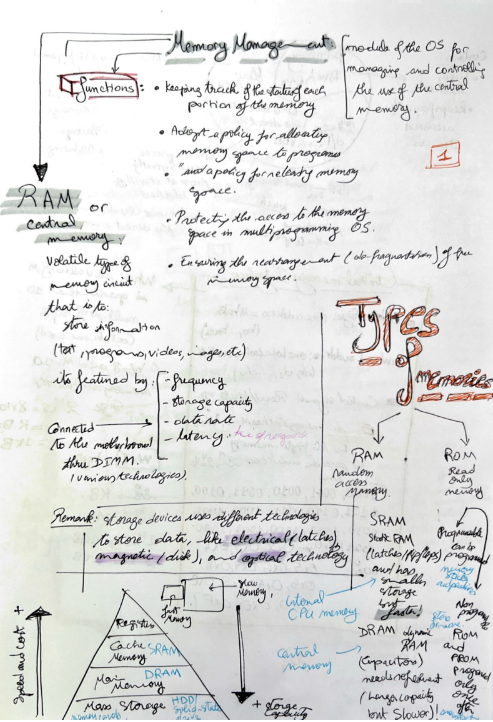 Memory Manage ent:
module of the OS for
managing and controlling
the use of the central
memory.
Functions:
• Keeping track of the status of each
portion of the memory
• Adopt a policy for allocating
memory space to programs
• " and a policy for releasing memory
space.
• Protecting the access to the memory
space in multiprogramming OS.
• Ensuring the rearrangement of free
memory space.
1
RAM or
central
memory
volatile type of
memory circuit
that is to:
store information
(text, programs, videos, images, etc)
its featured by:
- frequency
- storage capacity
- data rate
- latency.
Connected
to the motherboard
thru DIMM.
(various technologies).
Types
of
memories
RAM
random
access
memory
ROM
Read
only
memory
Remark: storage devices uses different technologies
to store data, like electrical (latches)
magnetic (disk), and optical technology
SRAM
static RAM
(latches/flipflops)
smaller
storage
but
faster.
Programmable
can be
programed
Internal
CPU memory
Central
memory
DRAM dynamic
RAM
(capacitors)
needs refreshment
(larger capacity
but slower)
ROM
and
PROM
programed
only
once
slow
memory
fast
memory
Speed and cost +
Registers
Cache
Memory SRAM
Main
Memory DRAM
Mass Storage HDD
+ storage
capacity